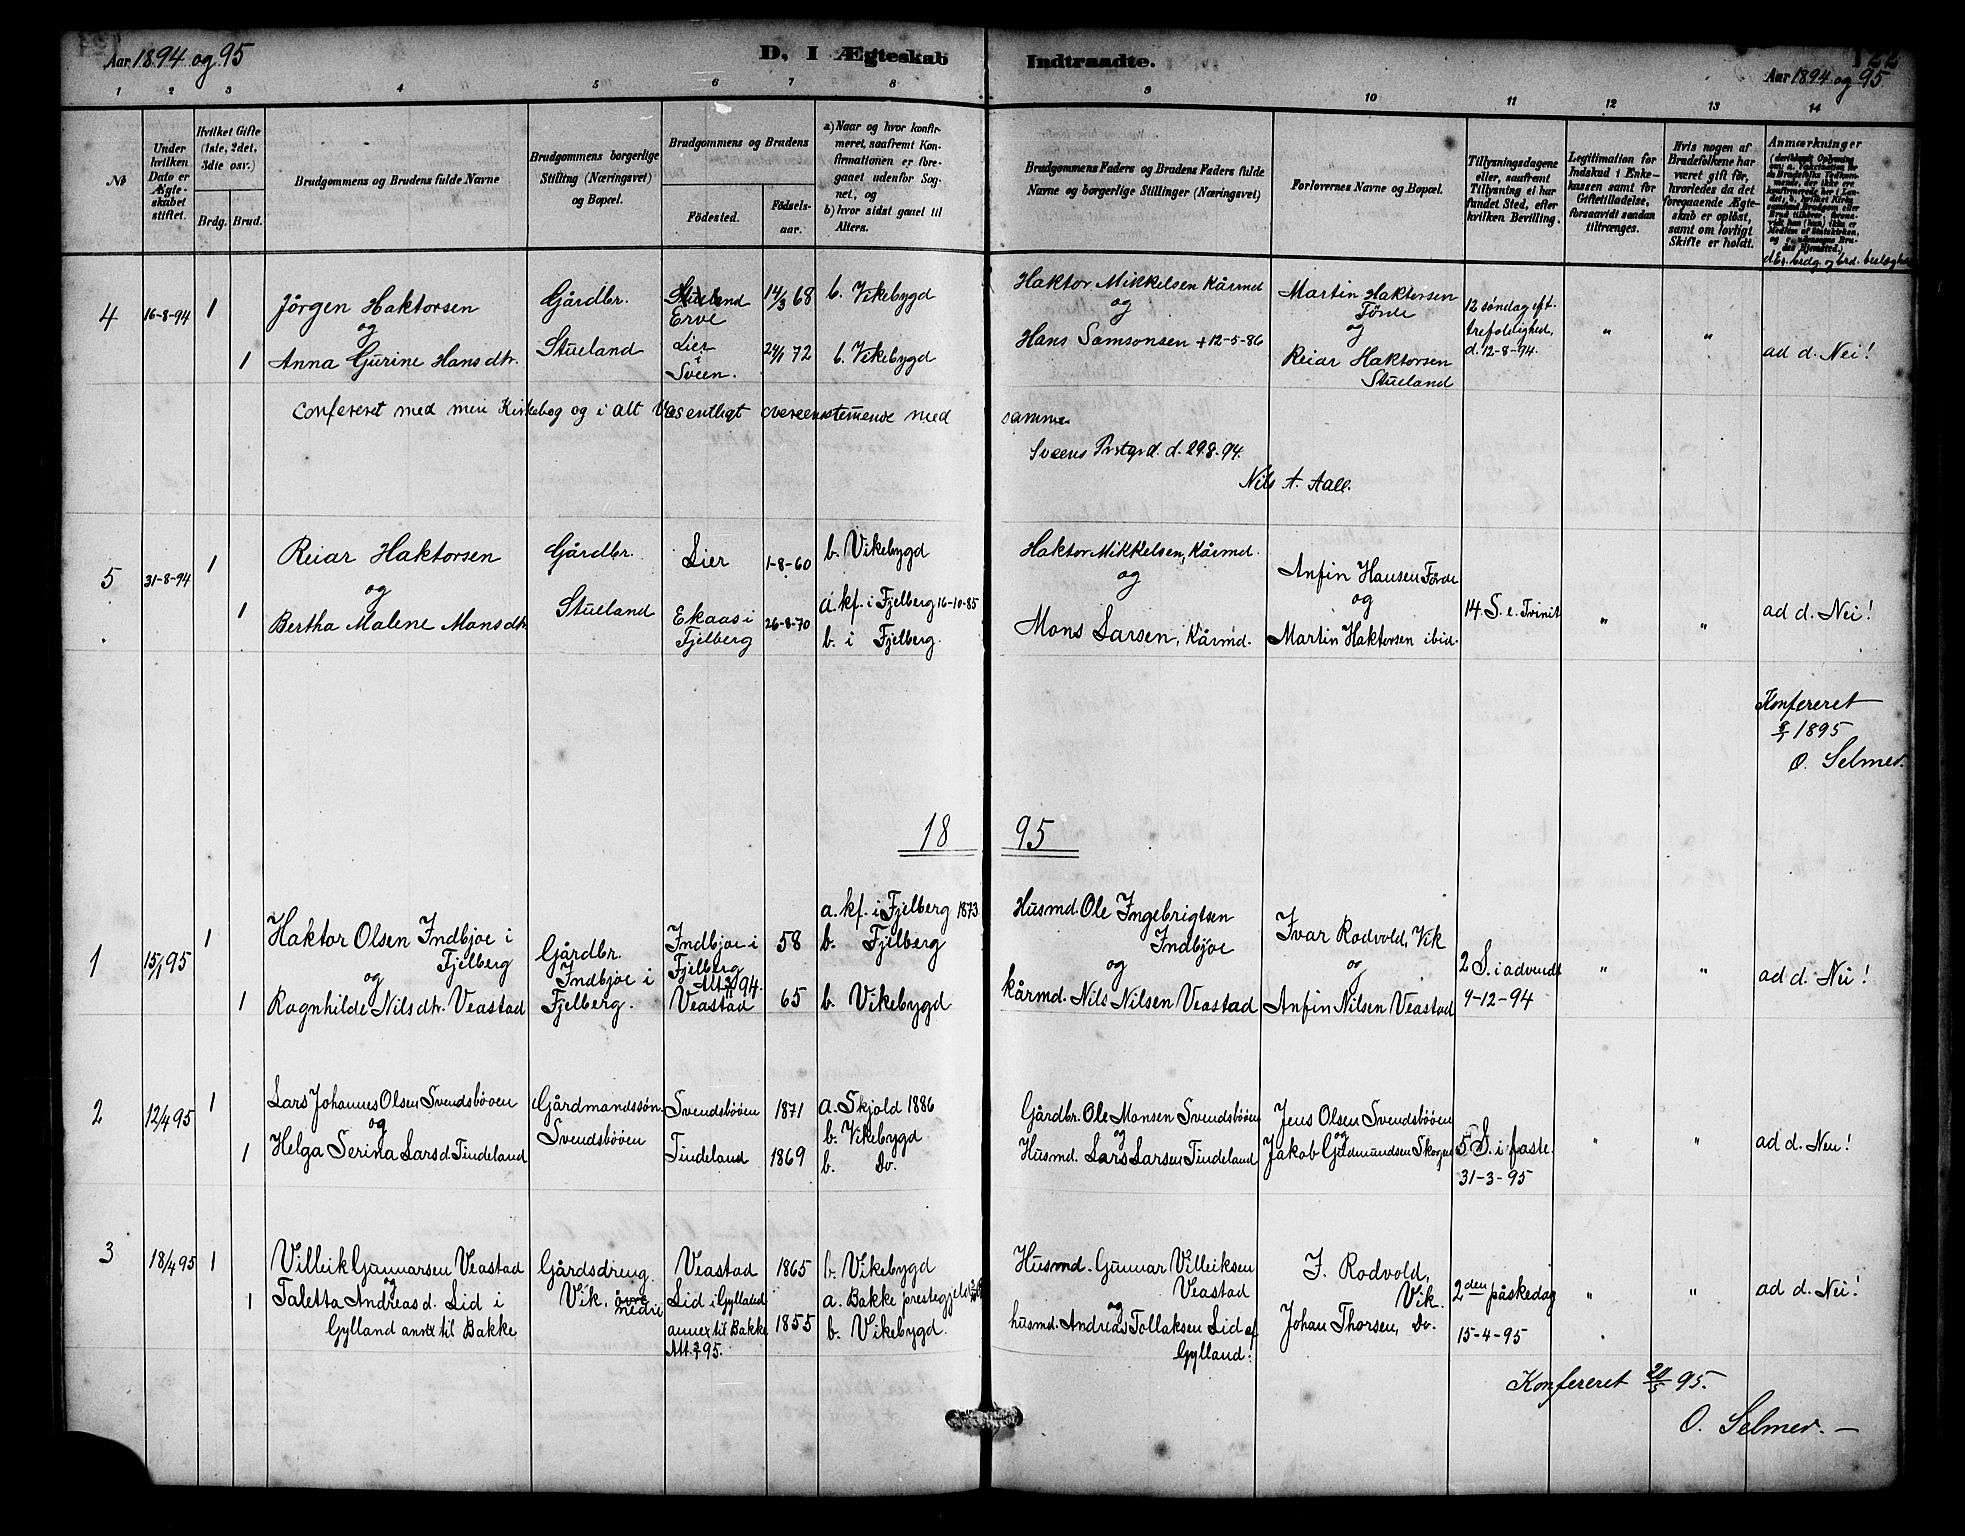 Aar 1894 og 95
D, I Ægteskab
Indtraadte.
122
Aar 1894 og 95.
1 2 3 4 5 6 7 8
9 10 11 12 13 14
No
Under hvilken Dato er Ægteskabet stiftet.
Hvilket Gifte (1ste, 2det, 3die osv.)
Brdg. Brud.
Brudgommens og Brudens fulde Navne
Brudgommens borgerlige Stilling (Næringsvei) og Bopæl.
Brudgommens og Brudens
Fødested.
Fødselsaar.
a) Naar og hvor konfirmeret, saafremt Konfirmationen er foregaaet udenfor Sognet, og
b) hvor sidst gaaet til Alters.
Brudgommens Faders og Brudens Faders fulde Navne og borgerlige Stillinger (Næringsvei)
Forlovernes Navne og Bopæl.
Tillysningsdagene eller, saafremt Tillysning ei har fundet Sted, efter hvilken Bevilling.
Legitimation for Indskud i Enkekassen samt for Giftetilladelse, forsaavidt saadan tiltrænges.
Hvis nogen af Brudefolkene har været gift før, hvorledes da det foregaaende Ægteskab er opløst, samt om lovligt Skifte er holdt.
Anmærkninger
d Er brdg. og brd. beslægtede
4
16-8-94
1
Jörgen Haktorsen
og
1
Anna Gurine Hansdtr.
Gårdbr.
Stueland
Stueland
Erve
Lier
i
Sveen.
14/3 68
24/1 72
b. Vikebygd
b. Vikebygd
Haktor Mikkelsen Kårmd
og
Hans Samsonsen + 12-5-86
Martin Haktorsen
Förde
og
Reiar Haktorsen
Stueland
12 søndag eft.
trefoldighed,
d. 12-8-94.
" "
ad d. Nei!
Confereret med min Kirkebog og i alt Væsentligt overensstemende med
samme.
Sveens Prstgrd. d. 29.8-94.
Nils A. Aall.
5
31-8-94
1
Reiar Haktorsen
og
1
Bertha Malene Monsdtr.
Gårdbr.
Stueland
Lier
Ekaas i
Fjelberg
1-8-60
26-8-70
b. Vikebygd
a. kf. i Fjelberg 16-10-85
b. i Fjelberg.
Haktor Mikkelsen, Kårmd.
og
Mons Larsen, Kårmd.
Anfin Hansen Förde
og
Martin Haktorsen ibid.
14. S. e. Trinit
" "
ad d. Nei!
Konfereret
8/1 1895
O. Selmer.
18 95
1
15/1 95
1
Haktor Olsen Indbjoe i
Fjelberg
og
1
Ragnhilde Nilsdtr. Veastad
Gårdbr.
Indbjoe i
Fjelberg.
Indbjoe i
Fjelberg
Veastad
58
65
a. kf. i Fjelberg 1873
b. Fjelberg
b. Vikebygd
Husmd. Ole Ingebrigtsen
Indbjoe
og
kårmd. Nils Nilsen Veastad
Ivar Rodvold, Vik
og
Anfin Nilsen Veastad
2 S. i advendt
9-12-94
" "
ad d. Nei!
2
12/4 95
1
Lars Johannes Olsen Svendsbøen
og
1
Helga Serina Larsd. Tindeland
Gårdmandssøn.
Svendsbøen
Svendsbøen
Tindeland
1871
1869
a. Skjold 1886
b. Vikebygd
b. Do.
Gårdbr. Ole Monsen Svendsbøen
og
Husmd. Lars Larsen Tindeland
Jens Olsen Svendsbøen
og
Jakob Gudmundsen
5 S. i faste.
31-3-95
" "
ad d. Nei!
3
18/4 95
1
Villeik Gunnarsen Veastad
og
1
Taletta Andreasd. Lid i
Gylland annex til Bakke
Gårdsdreng.
Vik, øvre
nedre
Veastad
Lid i Gylland
annex til Bakke
1865
1855
b. Vikebygd
a. Bakke prestegjeld
b. Vikebygd.
Husmd. Gunnar Villeiksen
Veastad
og
husmd. Andreas Tollaksen Lid af
Gylland.
I. Rodvold,
Vik.
Johan Thorsen, Do.
2den påskedag
15-4-95
" "
ad d. Nei!
Konfereret 20/5 95.
O. Selmer. —